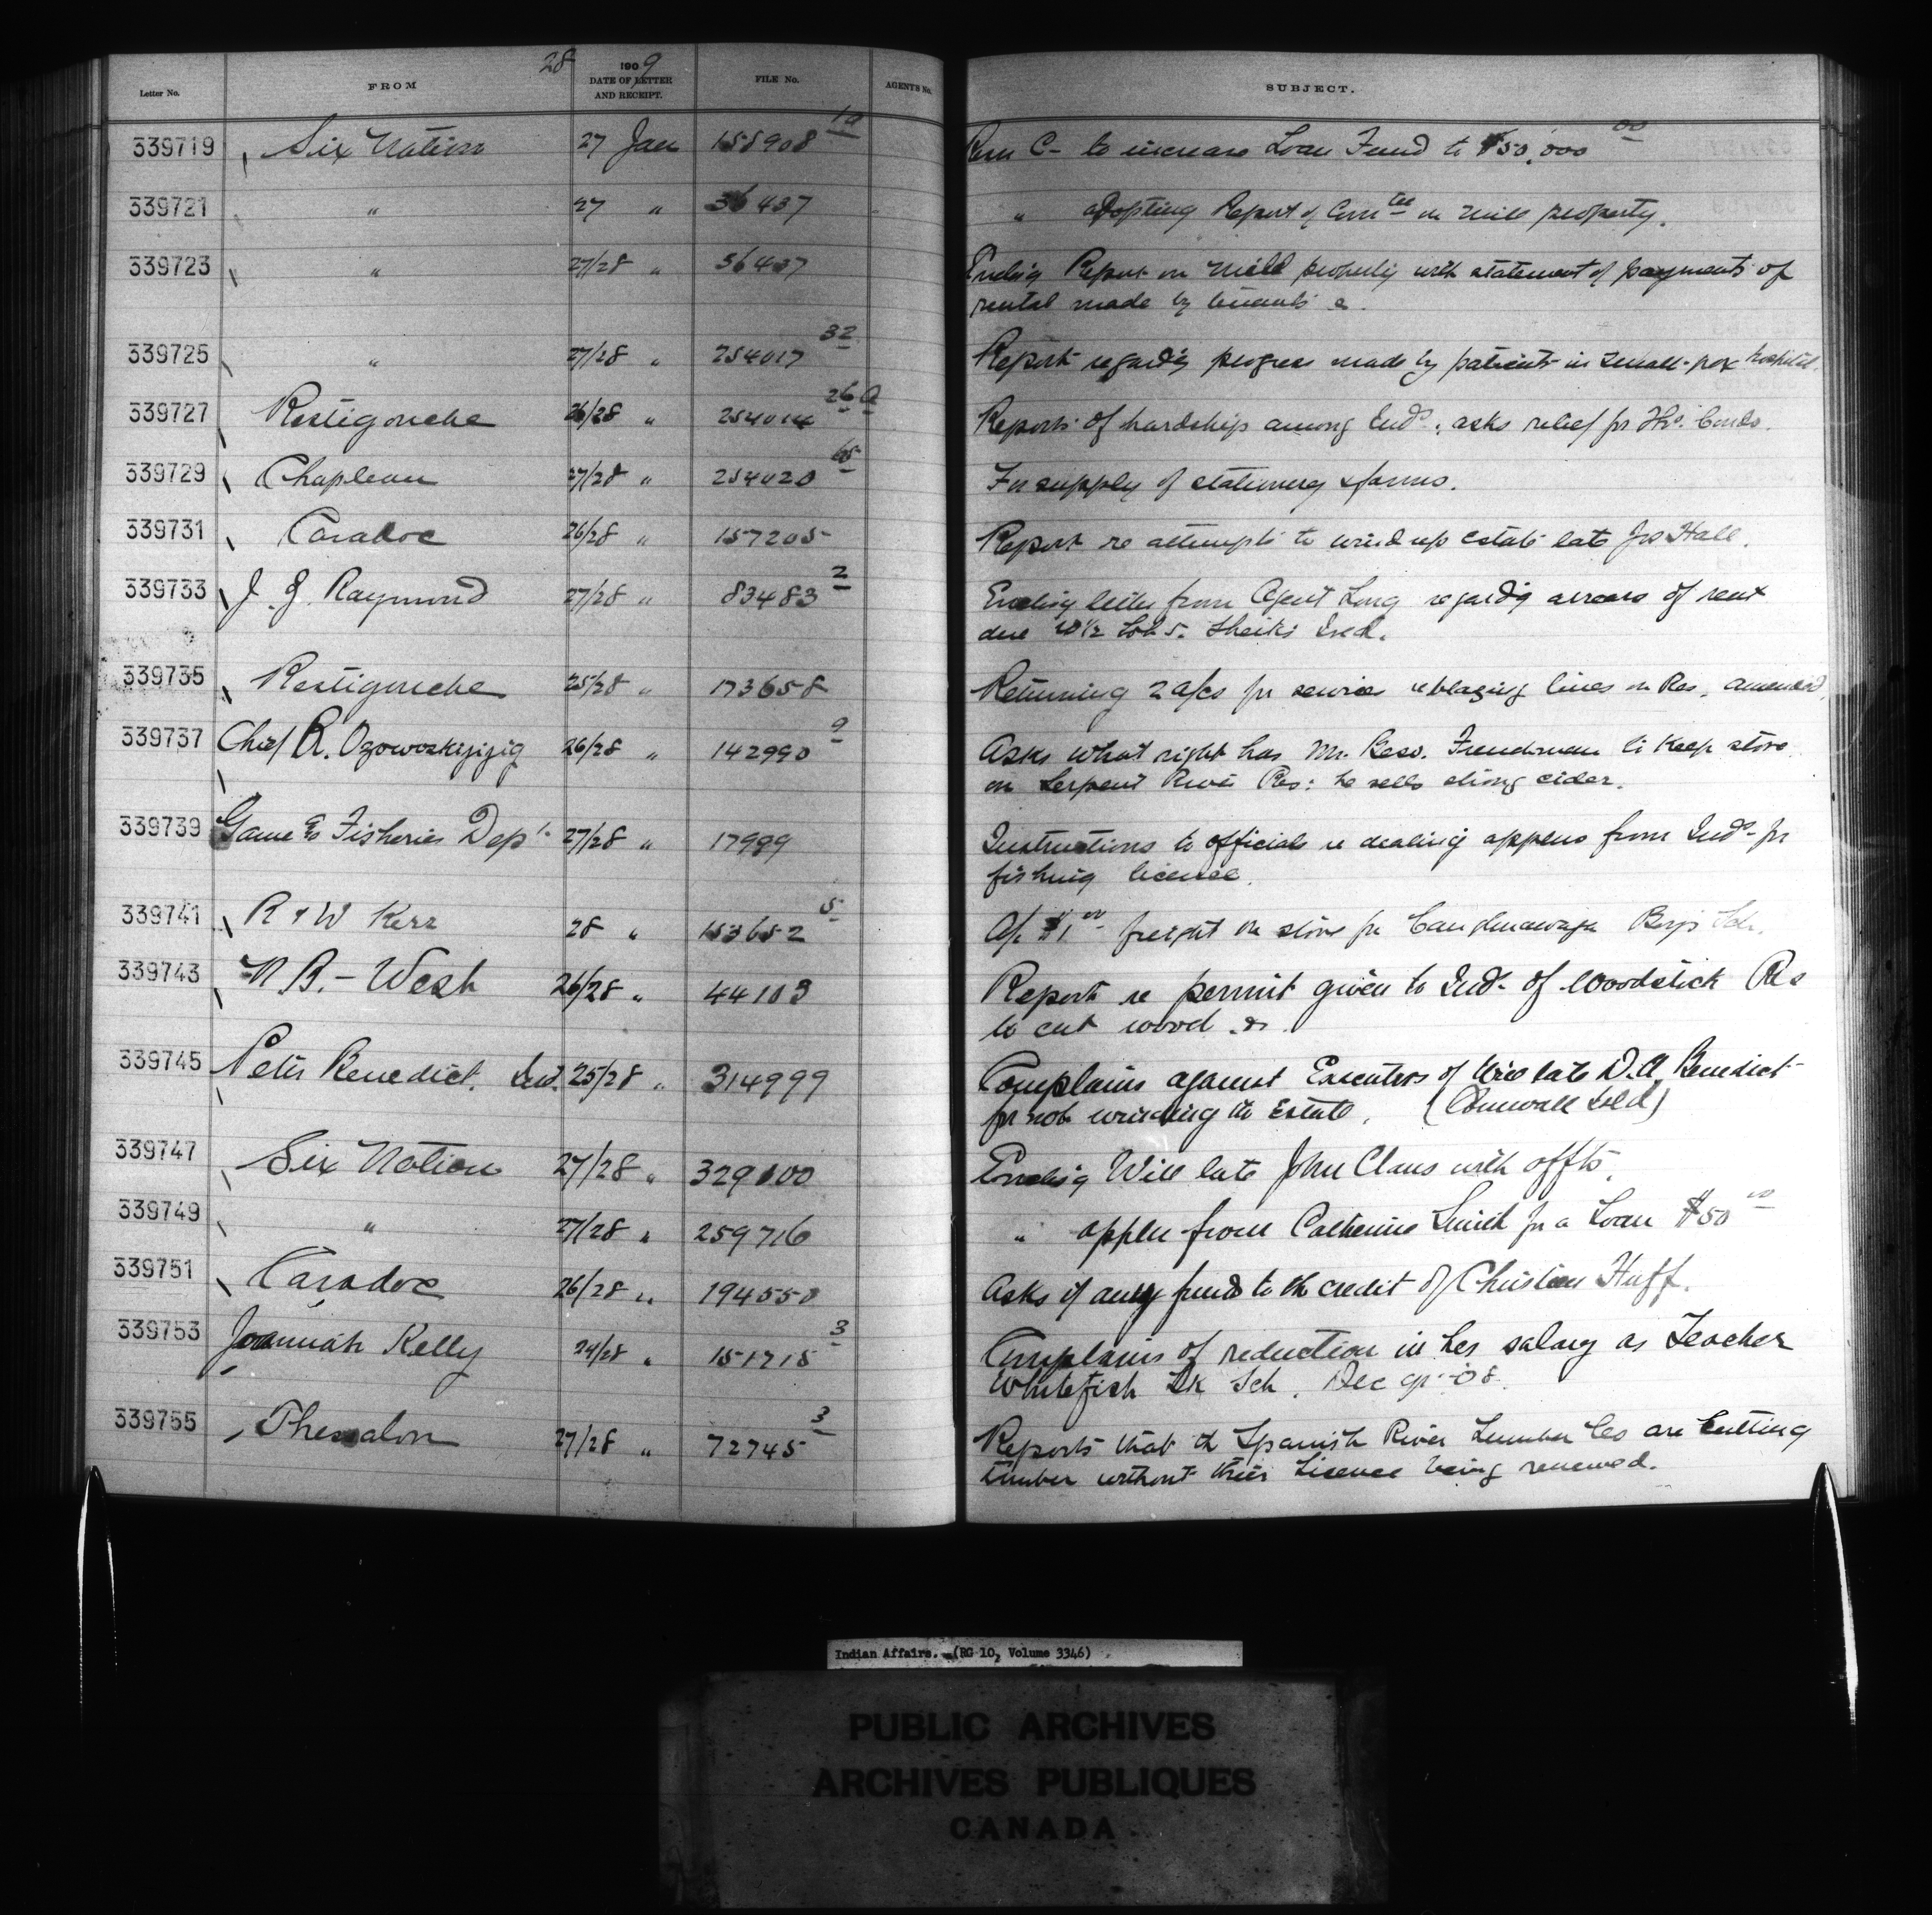 28
Letter No. FROM 1909 DATE OF LETTER AND RECEIPT. FILE No. AGENTS No. SUBJECT.
339719 Six Nation 27 Jan 158908 1a C- to increase Loan Fund to $50,000 00
339721 " 27 " 36437 " adopting Report of Comtee on Mill property.
339723 " 27/28 " 36437 Encling Report on Mill property with statement of payments of
rental made by tenants &.
339725 " 27/28 " 254017 32 Report regardg progress made by patients in small-pox hospital.
339727 Restigouche 26/28 " 254014 26 a Reports of hardship among Inds. asks relief for
339729 Chapleau 27/28 " 254020 65 For supply of stationery & forms.
339731 Caradoc 26/28 " 157205 Report re attempts to wind up estate late Jos Hall.
339733 J. J. Raymond 27/28 " 83483 2 Encling letter from Agent Long regardg arrears of rent
due W½ Lot 5.
339735 Restigouche 25/28 " 173658 Returning 2 a/cs for services reblazing lines on Res. amended.
339737 Chief R. Ozowoskijizig 26/28 " 142990 9 Asks what right has Mr. Frenchman to keep store
on Serpent River Res: he sells strong cider.
339739 Game & Fisheries Dept. 27/28 " 17989 Instructions to officials re dealing applens from Inds- for
fishing license.
339741 R & W Kerr 28 " 153652 5 A/c $1 00 freight on stove for Caughnawaga Boys Sch.
339743 N B. - West 26/28 " 44103 Report re permit given to Inds- of Woodstock Res
to cut wood &.
339745 Peter Benedict. Ind. 25/28 " 314999 Complains against Executors of Will late D. A. Benedict
for not winding up Estate. (Cornwall Isld)
339747 Six Nation 27/28 " 329100 Encling Will late John Claus with affts.
339749 " 27/28 " 259716 " applen from Catherine Smith for a Loan $50 00
339751 Caradoc 26/28 " 194550 Asks if any funds to the credit of Christian Huff.
339753 Joanniah Kelly 24/28 " 151715 3 Complains of reduction in her salary as Teacher
Whitefish Lk Sch. Dec qr. 08.
339755 Thessalon 27/28 " 72745 3 Reports that the Spanish River Lumber Co are cutting
timber without their License being renewed.
Indian Affairs. (RG 10, Volume 3346)
PUBLIC ARCHIVES
ARCHIVES PUBLIQUES
CANADA